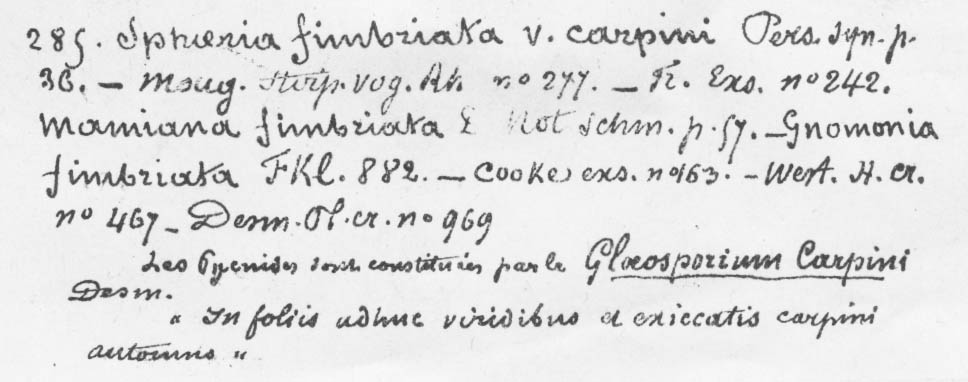 285. Sphæria fimbriata v. carpini Pers. syn. p.
36. – Moug. Stirp. vog. Rh. no 277. – Fr. Exs. no 242.
Mamiana fimbriata E Not Schm. p. 57. – Gnomonia
fimbriata FKl. 882. – Cooke exs. no 163. – West. H. cr.
no 467 – Desm. Pl. cr. no 969
Les Pycnides sont constituées par le Glœosporium Carpini
Desm.
" In foliis adhuc viridibus et exiccatis carpini
automno "